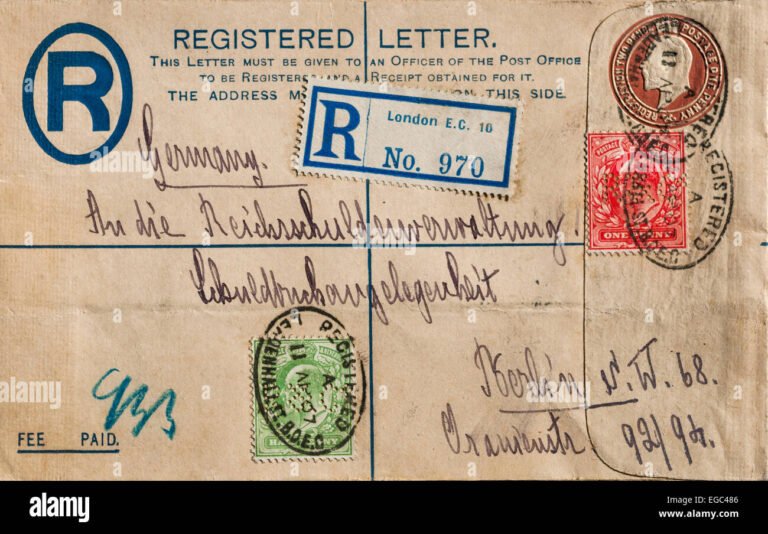 REGISTERED LETTER.
THIS LETTER MUST BE GIVEN TO AN OFFICER OF THE POST OFFICE
TO BE REGISTERED AND A RECEIPT OBTAINED FOR IT.
THE ADDRESS ON THIS SIDE.
R
R
London E.C. 10
No. 970
Germany.
An die Reichsschuldenverwaltung.
Schuldbuchangelegenheit
Berlin S.W. 68.
Oranienstr 92/94.
POSTAGE
ONE PENNY
REGISTERED
A
REGISTERED
A
LEADENHALL ST. B.O. E.C.
FEE PAID.
alamy
www.alamy.com
Image ID: EGC486